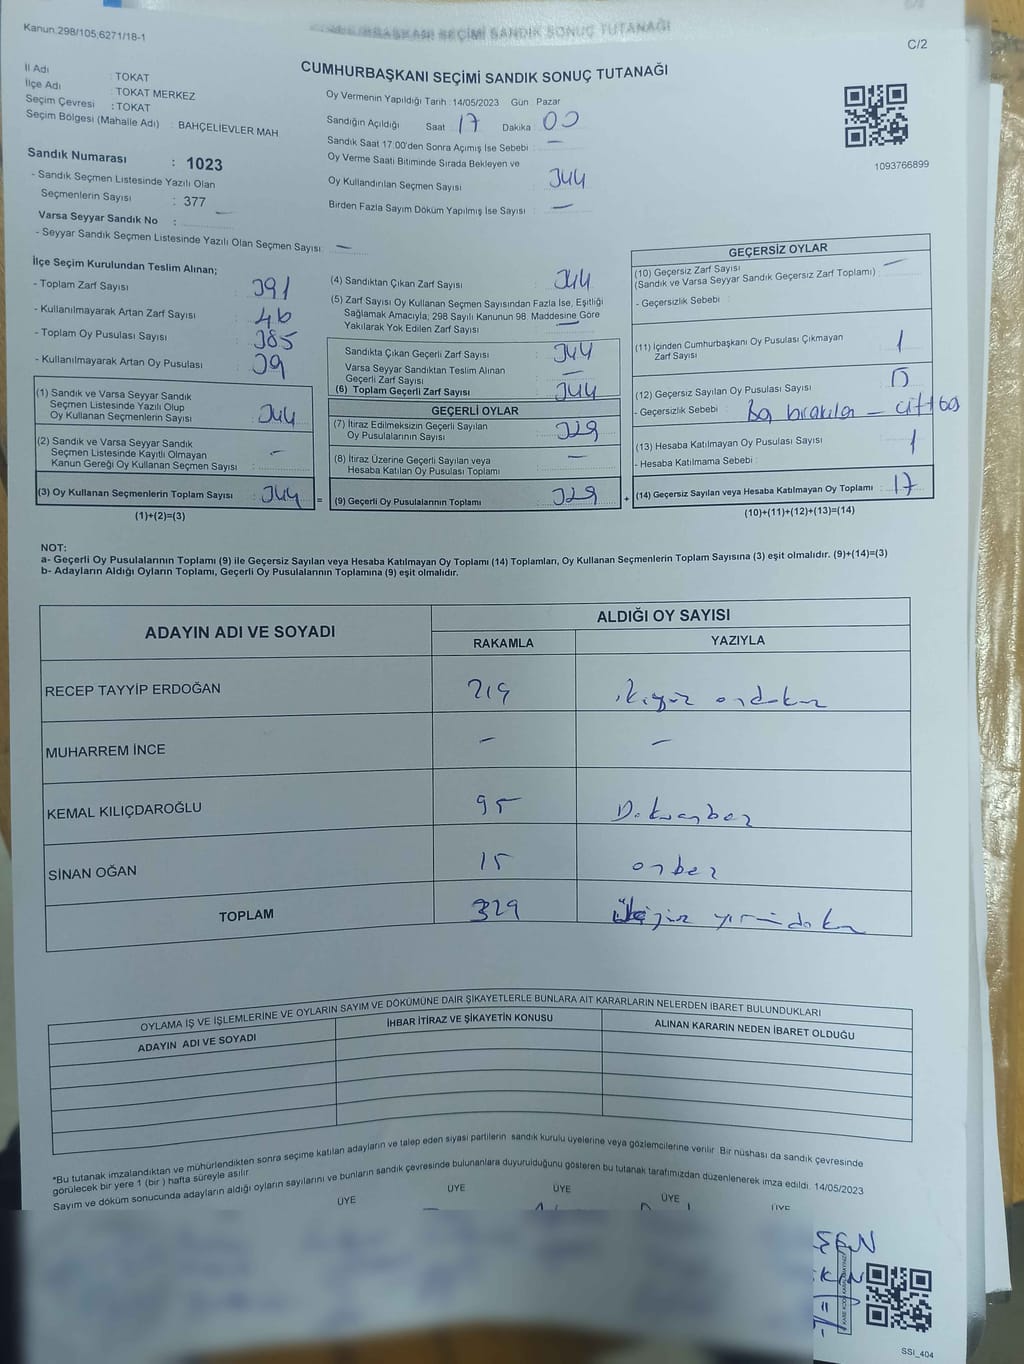 Kanun.298/105;6271/18-1
C/2
CUMHURBAŞKANI SEÇİMİ SANDIK SONUÇ TUTANAĞI
İl Adı : TOKAT
İlçe Adı : TOKAT MERKEZ
Seçim Çevresi : TOKAT
Seçim Bölgesi (Mahalle Adı) : BAHÇELİEVLER MAH
Sandık Numarası : 1023
- Sandık Seçmen Listesinde Yazılı Olan
Seçmenlerin Sayısı : 377
Varsa Seyyar Sandık No : —
- Seyyar Sandık Seçmen Listesinde Yazılı Olan Seçmen Sayısı: —
Oy Vermenin Yapıldığı Tarih :14/05/2023 Gün Pazar
Sandığın Açıldığı Saat 17 Dakika 00
Sandık Saat 17.00'den Sonra Açımış İse Sebebi : —
Oy Verme Saati Bitiminde Sırada Bekleyen ve
Oy Kullandırılan Seçmen Sayısı : 344
Birden Fazla Sayım Döküm Yapılmış İse Sayısı : —
1093766899
İlçe Seçim Kurulundan Teslim Alınan;
- Toplam Zarf Sayısı : 391
- Kullanılmayarak Artan Zarf Sayısı : 46
- Toplam Oy Pusulası Sayısı : 385
- Kullanılmayarak Artan Oy Pusulası : 39
(1) Sandık ve Varsa Seyyar Sandık
Seçmen Listesinde Yazılı Olup
Oy Kullanan Seçmenlerin Sayısı : 344
(2) Sandık ve Varsa Seyyar Sandık
Seçmen Listesinde Kayıtlı Olmayan
Kanun Gereği Oy Kullanan Seçmen Sayısı : —
(3) Oy Kullanan Seçmenlerin Toplam Sayısı : 344
(1)+(2)=(3)
=
(4) Sandıktan Çıkan Zarf Sayısı : 344
(5) Zarf Sayısı Oy Kullanan Seçmen Sayısından Fazla İse, Eşitliği
Sağlamak Amacıyla; 298 Sayılı Kanunun 98. Maddesine Göre
Yakılarak Yok Edilen Zarf Sayısı : —
Sandıkta Çıkan Geçerli Zarf Sayısı : 344
Varsa Seyyar Sandıktan Teslim Alınan
Geçerli Zarf Sayısı : —
(6) Toplam Geçerli Zarf Sayısı : 344
GEÇERLİ OYLAR
(7) İtiraz Edilmeksizin Geçerli Sayılan
Oy Pusulalarının Sayısı : 329
(8) İtiraz Üzerine Geçerli Sayılan veya
Hesaba Katılan Oy Pusulası Toplamı : —
(9) Geçerli Oy Pusulalarının Toplamı : 329
+
GEÇERSİZ OYLAR
(10) Geçersiz Zarf Sayısı : —
(Sandık ve Varsa Seyyar Sandık Geçersiz Zarf Toplamı)
- Geçersizlik Sebebi :
(11) İçinden Cumhurbaşkanı Oy Pusulası Çıkmayan
Zarf Sayısı : 1
(12) Geçersiz Sayılan Oy Pusulası Sayısı : 15
- Geçersizlik Sebebi : Boş bırakılan —
(13) Hesaba Katılmayan Oy Pusulası Sayısı : 1
- Hesaba Katılmama Sebebi :
(14) Geçersiz Sayılan veya Hesaba Katılmayan Oy Toplamı : 17
(10)+(11)+(12)+(13)=(14)
NOT:
a- Geçerli Oy Pusulalarının Toplamı (9) ile Geçersiz Sayılan veya Hesaba Katılmayan Oy Toplamı (14) Toplamları, Oy Kullanan Seçmenlerin Toplam Sayısına (3) eşit olmalıdır. (9)+(14)=(3)
b- Adayların Aldığı Oyların Toplamı, Geçerli Oy Pusulalarının Toplamına (9) eşit olmalıdır.
ADAYIN ADI VE SOYADI
ALDIĞI OY SAYISI
RAKAMLA YAZIYLA
RECEP TAYYİP ERDOĞAN 219 ikiyüz ondokuz
MUHARREM İNCE — —
KEMAL KILIÇDAROĞLU 95 Doksanbeş
SİNAN OĞAN 15 onbeş
TOPLAM 329 üçyüz yirmidokuz
OYLAMA İŞ VE İŞLEMLERİNE VE OYLARIN SAYIM VE DÖKÜMÜNE DAİR ŞİKAYETLERLE BUNLARA AİT KARARLARIN NELERDEN İBARET BULUNDUKLARI
ADAYIN ADI VE SOYADI İHBAR İTİRAZ VE ŞİKAYETİN KONUSU ALINAN KARARIN NEDEN İBARET OLDUĞU
*Bu tutanak imzalandıktan ve mühürlendikten sonra seçime katılan adayların ve talep eden siyasi partilerin sandık kurulu üyelerine veya gözlemcilerine verilir. Bir nüshası da sandık çevresinde
görülecek bir yere 1 (bir ) hafta süreyle asılır.
Sayım ve döküm sonucunda adayların aldığı oyların sayılarını ve bunların sandık çevresinde bulunanlara duyurulduğunu gösteren bu tutanak tarafımızdan düzenlenerek imza edildi. 14/05/2023
ÜYE ÜYE ÜYE ÜYE ÜYE
SSİ_404